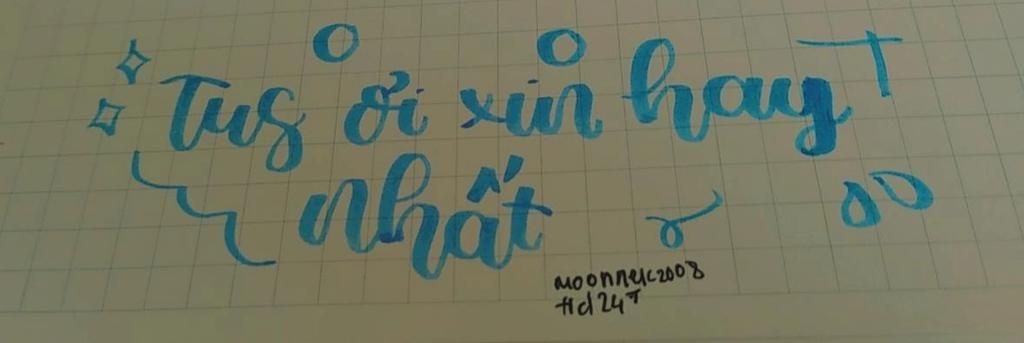 Tus ơi xỉn hay
nhất
moonneyc2008
Hd24T